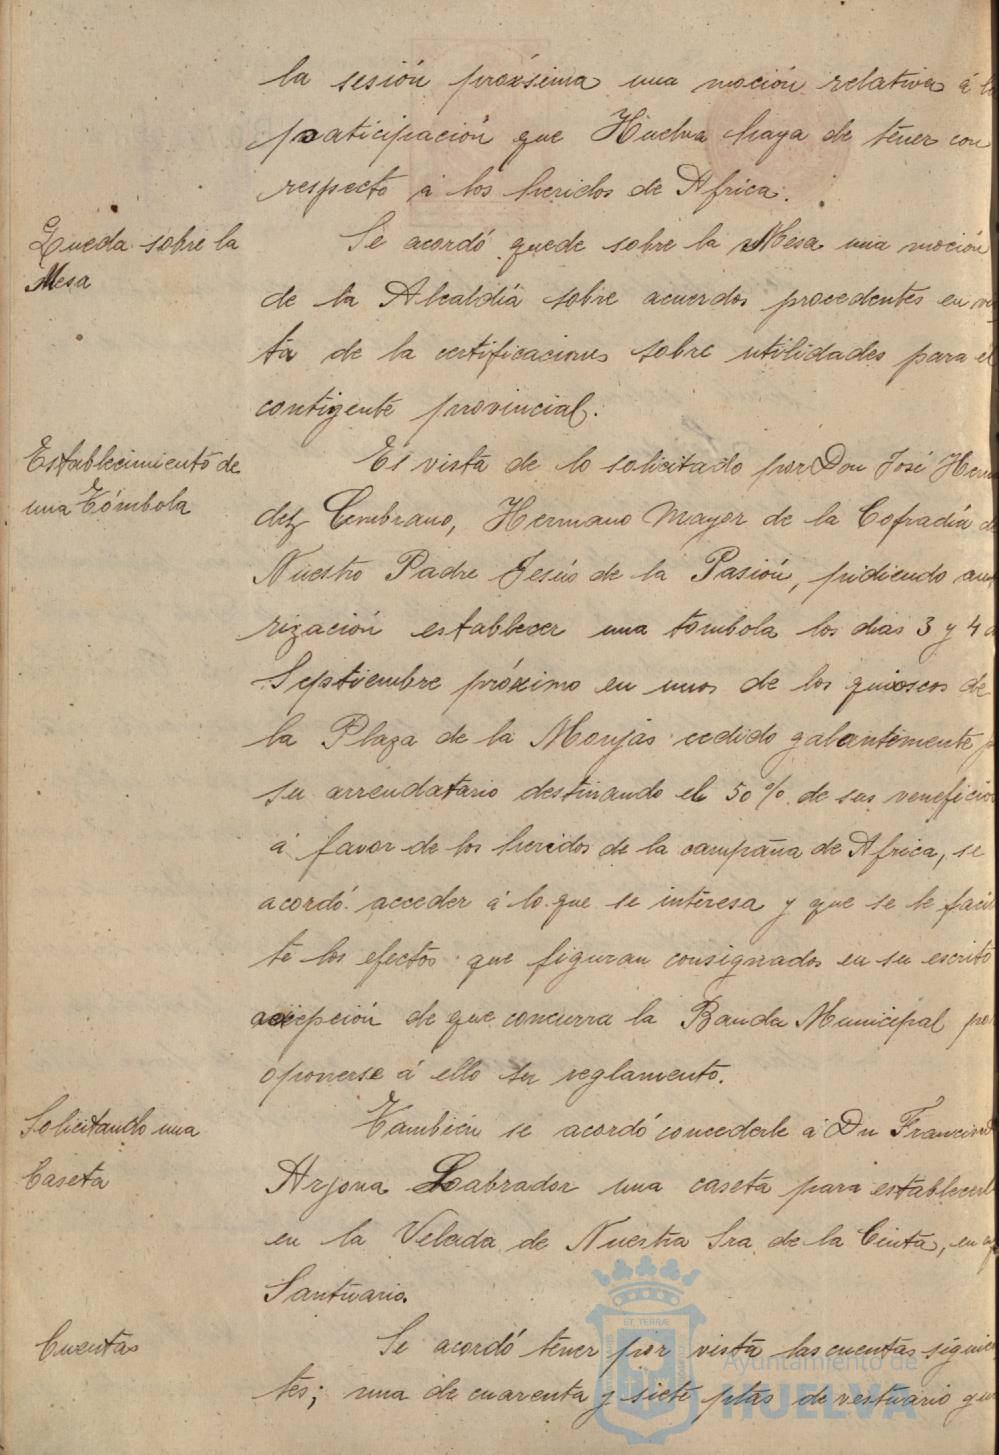 la sesión próxsima una moción relativa á la
participación que Huelva haya de tener con
respecto á los heridos de Africa.
Queda sobre la
Mesa
Se acordó quede sobre la Mesa una moción
de la Alcaldía sobre acuerdos procedentes en
ta de la certificaciones sobre utilidades para el
contigente provincial.
Establecimiento de
una Tómbola
Es vista de lo solicitado por Don José Hern
dez Cembrano, Hermano Mayor de la Cofradía de
Nuestro Padre Jesús de la Pasión, pidiendo
rización establecer una tómbola los dias 3 y 4 d
Septiembre próximo en unos de los quioscos de
la Plaza de la Monjas cedido galantemente p
su arrendatario destinando el 50% de sus veneficios
á favor de los heridos de la campaña de Africa, se
acordó acceder á lo que se interesa y que se le facil
te los efectos que figuran consignados en su escrito
de que concurra la Banda Municipal por
oponerse á ello su reglamento.
Solicitando una
Caseta
También se acordó concederle á Dn Francisco
Arjona Labrador una caseta para establecerl
en la Velada de Nuestra Sra de la Cinta, en
Santuario.
Cuentas
Se acordó tener por vista las cuentas siguien
tes; una de cuarenta y siete ptas de vestuario que
ET TERRÆ
Ayuntamiento de
HUELVA